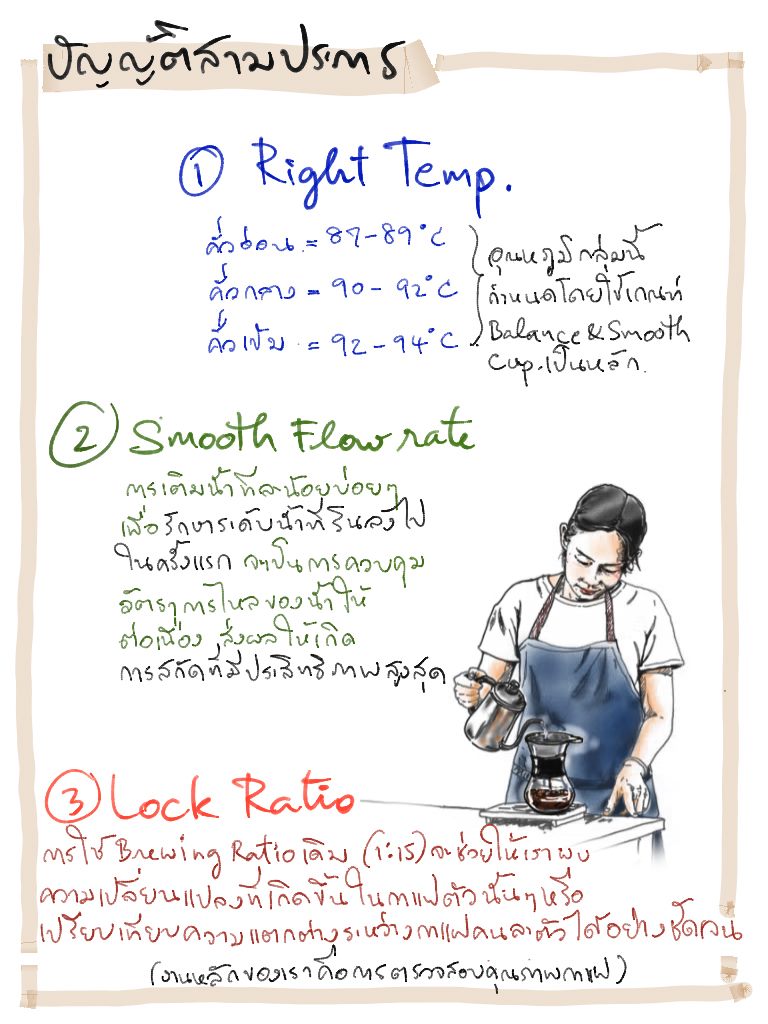 บัญญัติสามประการ
① Right Temp.
คั่วอ่อน = 87-89°C
คั่วกลาง = 90-92°C
คั่วเข้ม = 92-94°C
อุณหภูมิกลุ่มนี้
กำหนดโดยใช้เกณฑ์
Balance & Smooth
Cup.เป็นหลัก.
② Smooth Flow rate
การเติมน้ำทีละน้อยบ่อยๆ
เพื่อรักษาระดับน้ำที่รินลงไป
ในครั้งแรก จะเป็นการควบคุม
อัตราการไหลของน้ำให้
ต่อเนื่อง ส่งผลให้เกิด
การสกัดที่มีประสิทธิภาพสูงสุด
③ Lock Ratio
การใช้ Brewing Ratioเดิม (1:15) จะช่วยให้เราพบ
ความเปลี่ยนแปลงที่เกิดขึ้นในกาแฟตัวนั้นๆหรือ
เปรียบเทียบความแตกต่างระหว่างกาแฟคนละตัวได้อย่างชัดเจน
(งานหลักของเราคือการตรวจสอบคุณภาพกาแฟ)